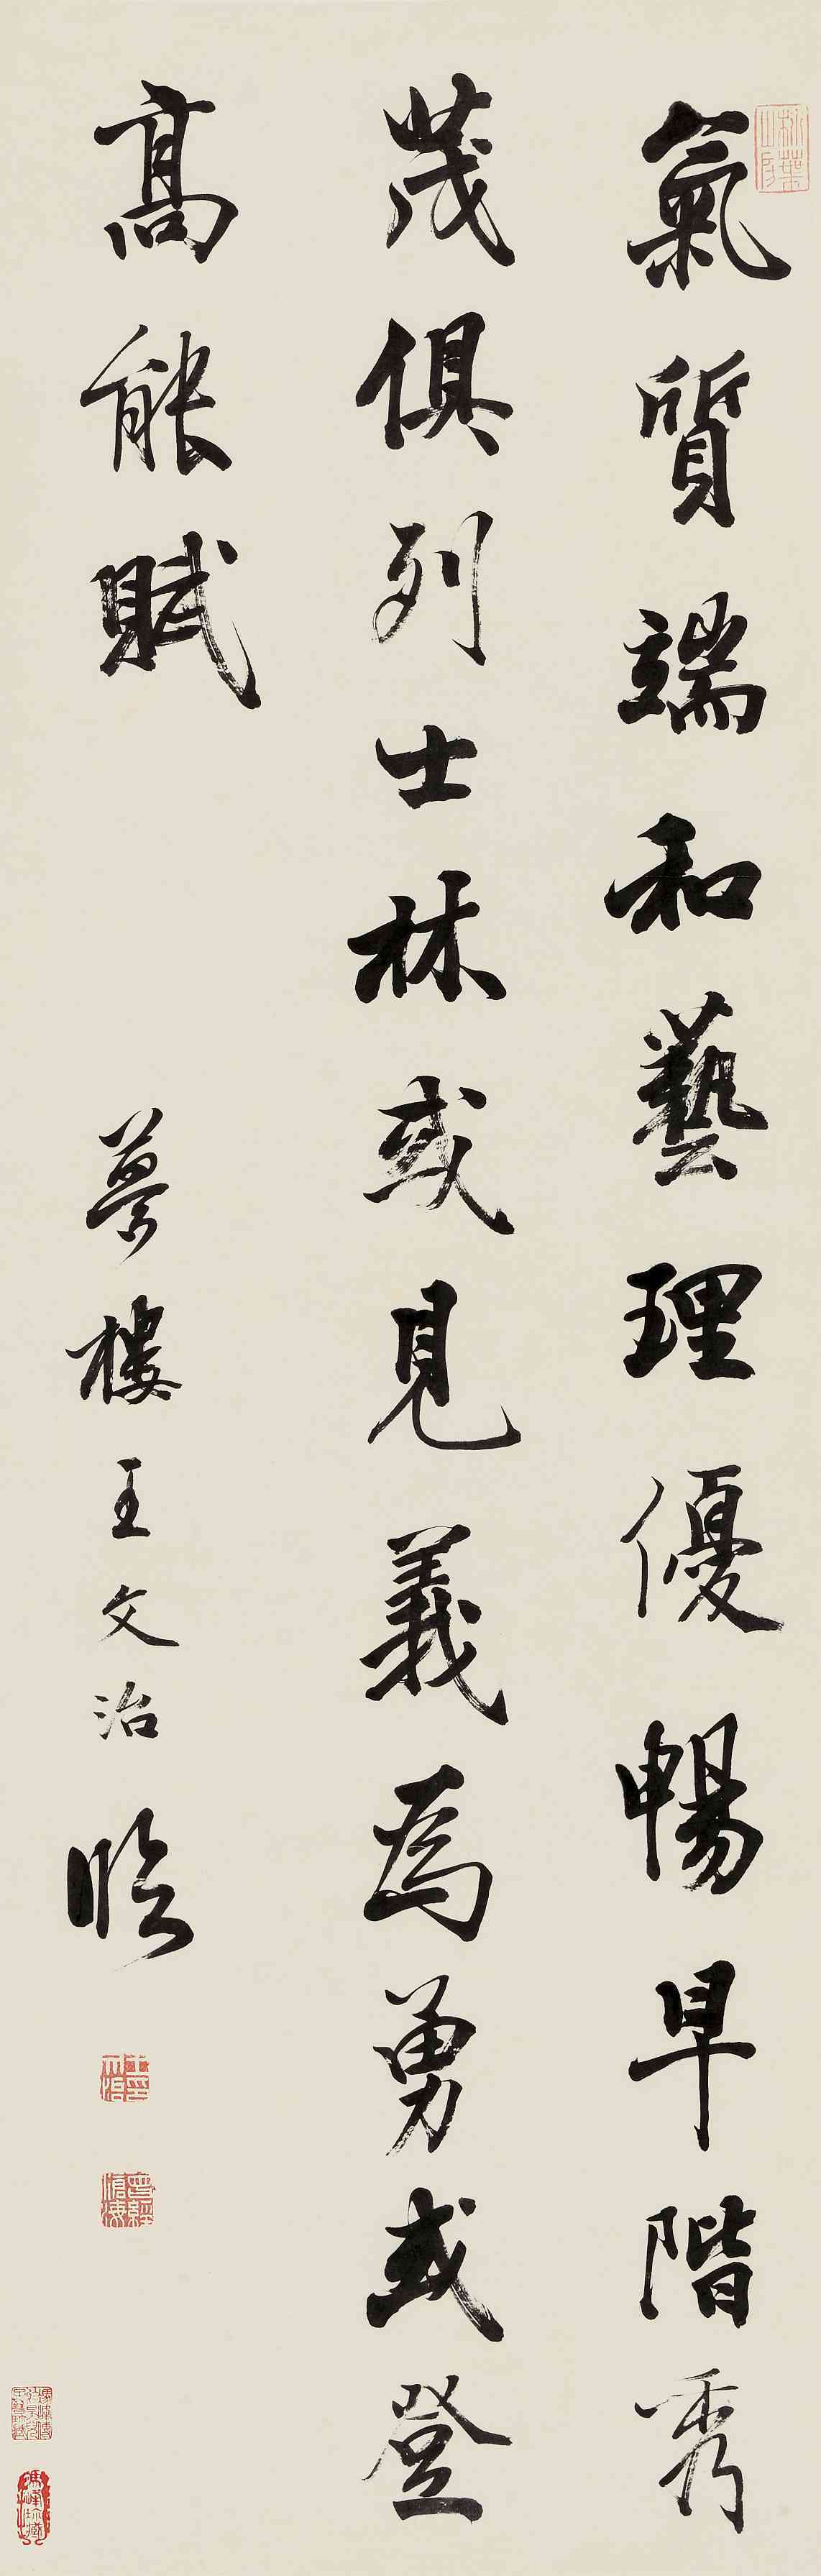 氣質端和藝理優暢早階秀
茂俱列士林或見義為勇或登
高能賦
夢樓王文治臨
曾經滄海